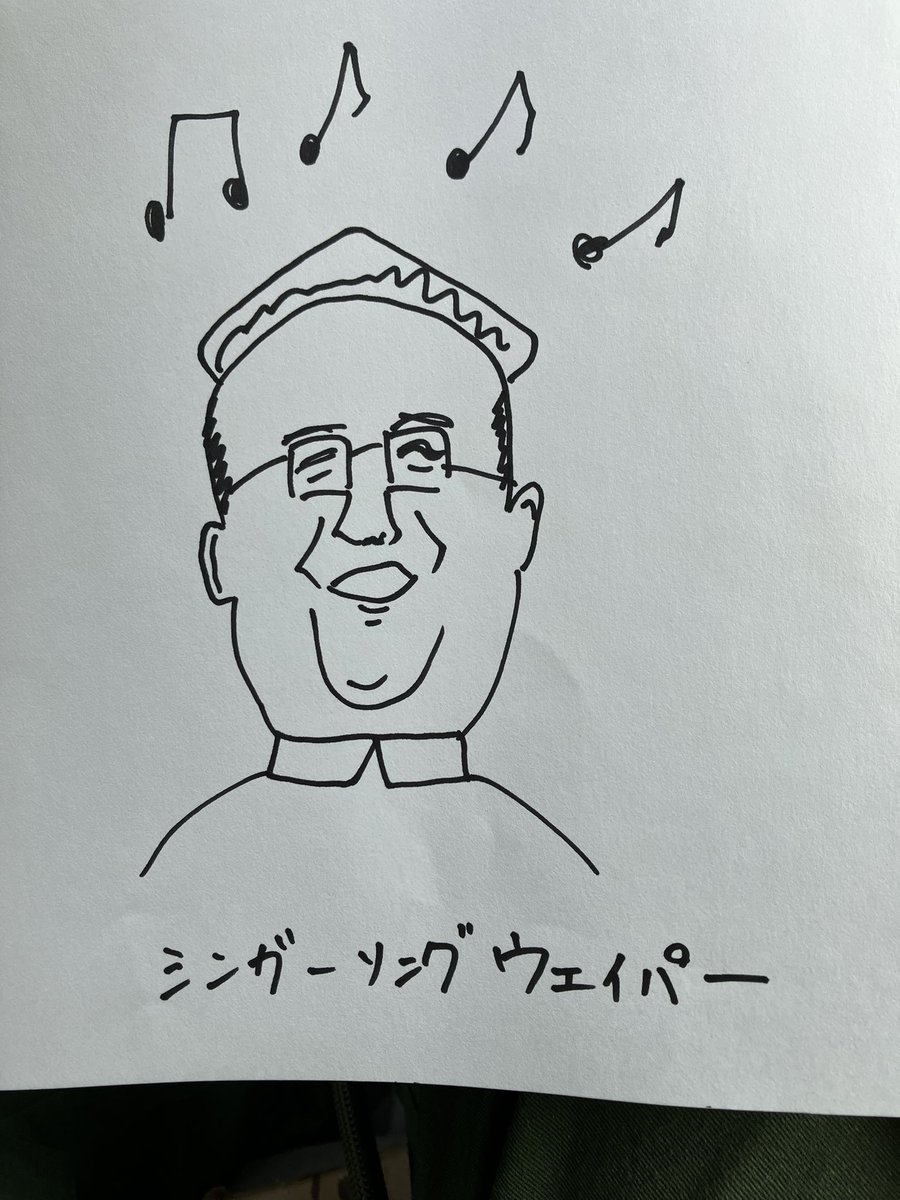 シンガーソングウェイパー